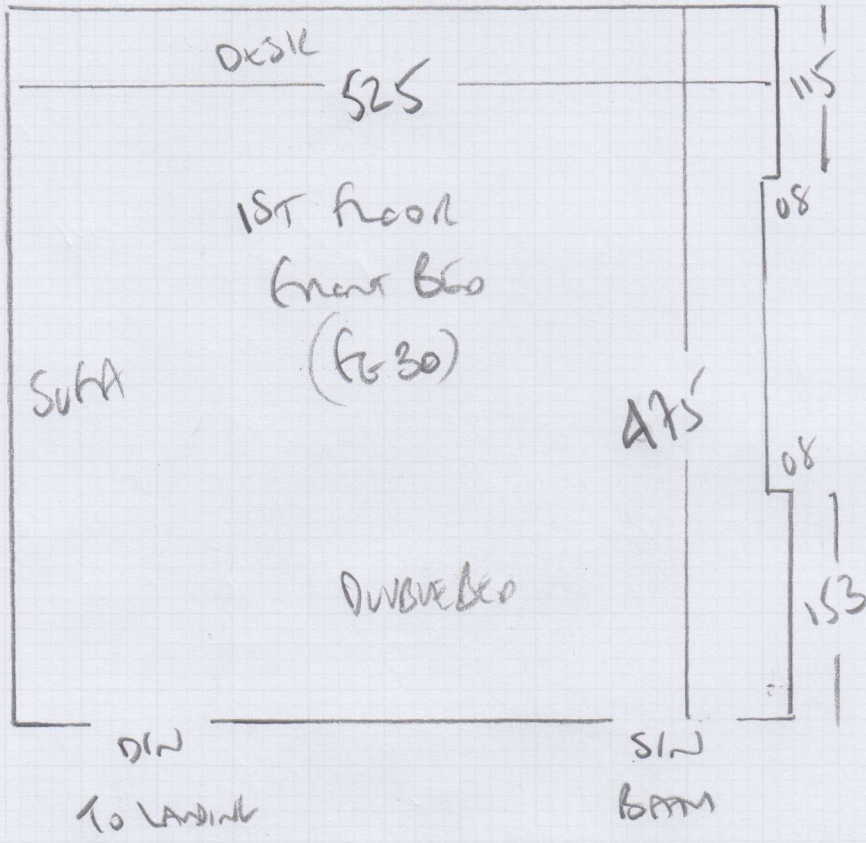 DESK
525
115
08
1ST FLOOR
FRONT BED
(FE 30)
SOFA
475
08
DOUBLE BED
153
DIN
TO LANDING
SIN